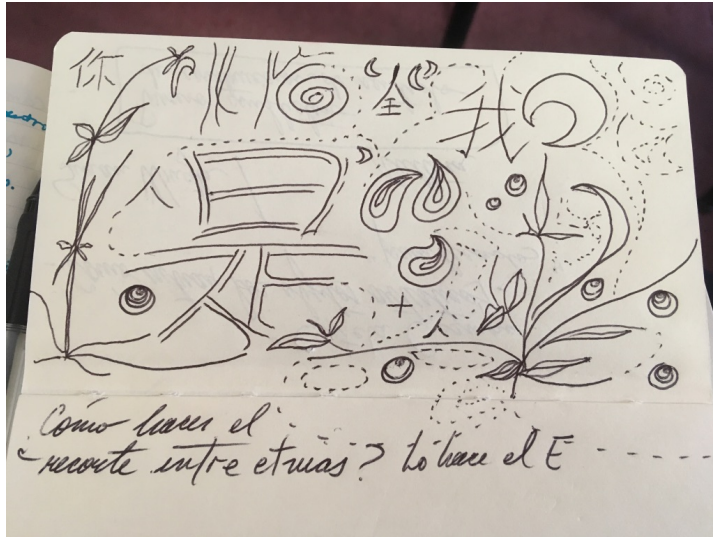 你 全 我
人 是
十
人
Cómo hacer el
¿recorte entre etnias? Lo hace el E - - - - -